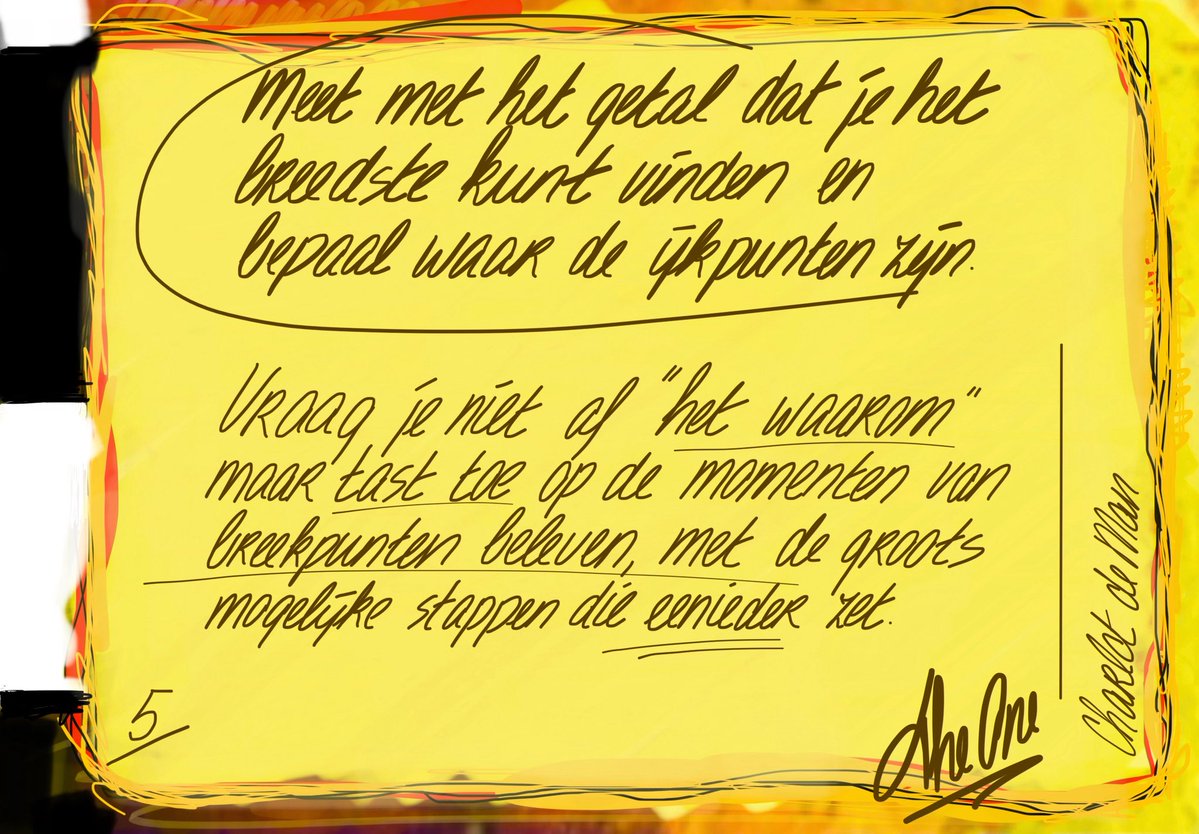 Meet met het getal dat je het
breedste kunt vinden en
bepaal waar de ijkpunten zijn.
Vraag je niet af "het waarom"
maar tast toe op de momenten van
breekpunten beleven, met de groots
mogelijke stappen die eenieder zet.
5
The One
Charlot de Man